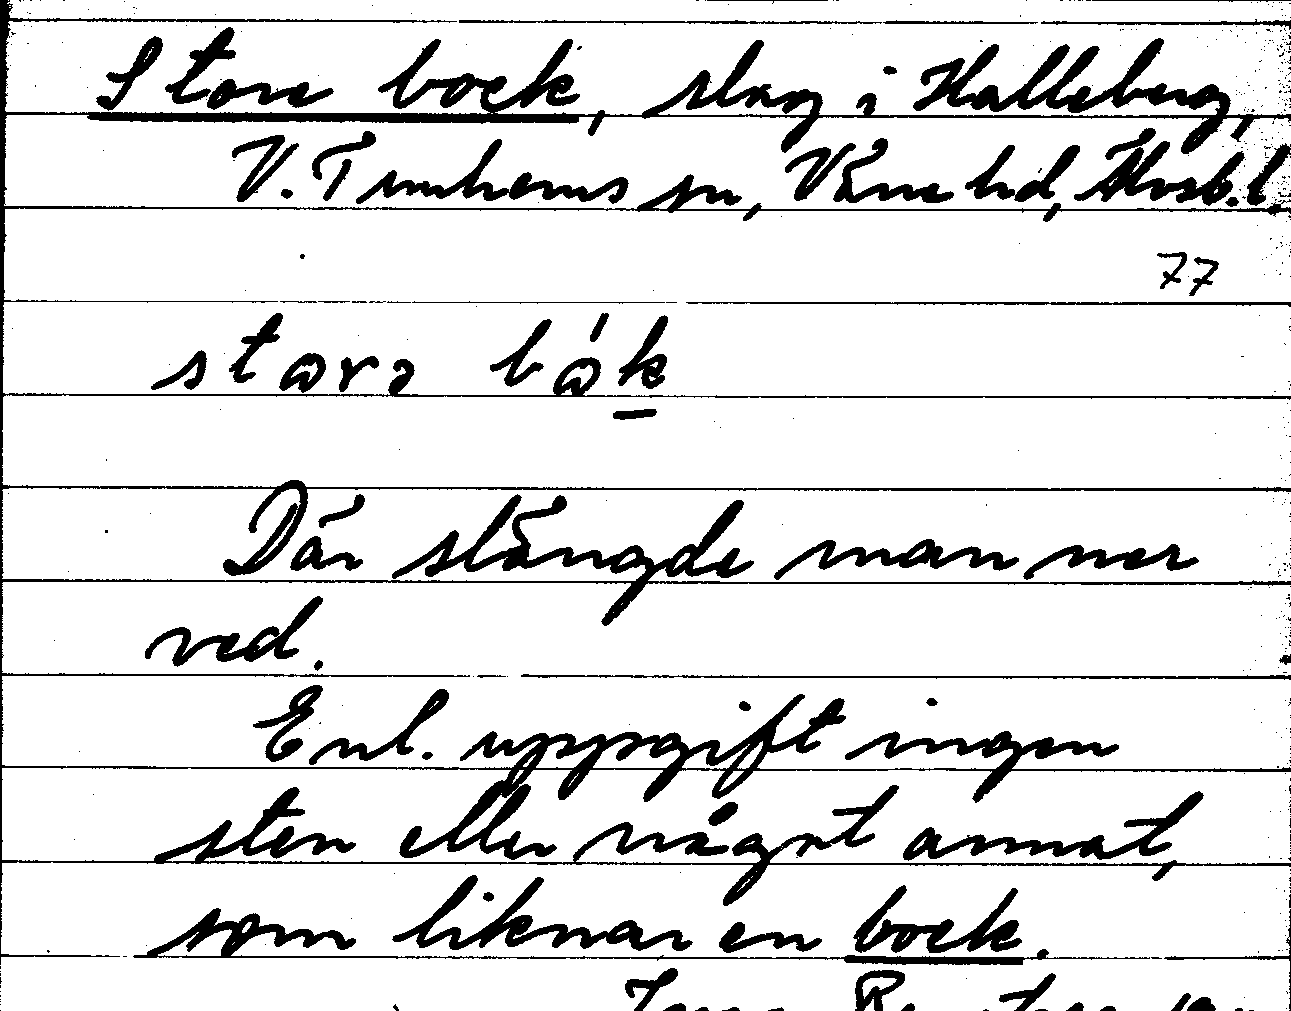 Store bock, slag i Halleberg,
V. Tunhems sn, Väne hd, Älvsb.l.
77
stɷrə bɷ́k
Där slängde man ner
ved.
Enl. uppgift ingen
sten eller något annat,
som liknar en bock.